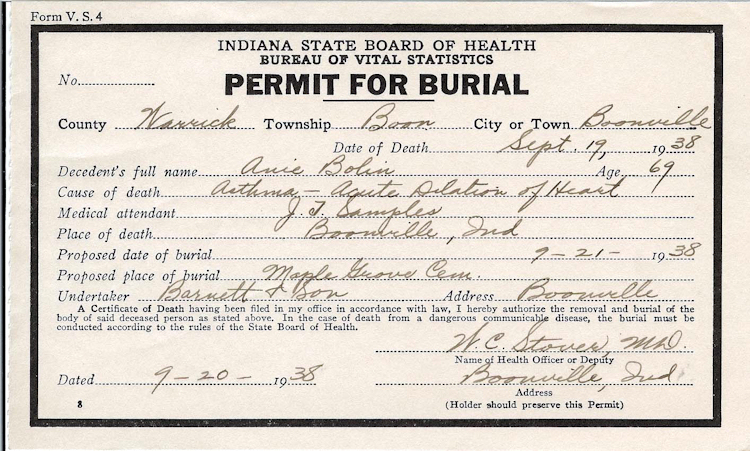 Form V. S. 4
INDIANA STATE BOARD OF HEALTH
BUREAU OF VITAL STATISTICS
No.
PERMIT FOR BURIAL
County Warrick Township Boon City or Town Boonville
Date of Death Sept. 19, 1938
Decedent's full name Anie Bolin Age 69
Cause of death Asthma – Acute Dilation of Heart
Medical attendant J. T. Samples
Place of death Boonville, Ind
Proposed date of burial 9-21- 1938
Proposed place of burial Maple Grove Cem.
Undertaker Barnett & Son Address Boonville
A Certificate of Death having been filed in my office in accordance with law, I hereby authorize the removal and burial of the
body of said deceased person as stated above. In the case of death from a dangerous communicable disease, the burial must be
conducted according to the rules of the State Board of Health.
W. C. Stover, M.D.
Name of Health Officer or Deputy
Dated 9-20- 1938 Boonville, Ind
Address
8 (Holder should preserve this Permit)